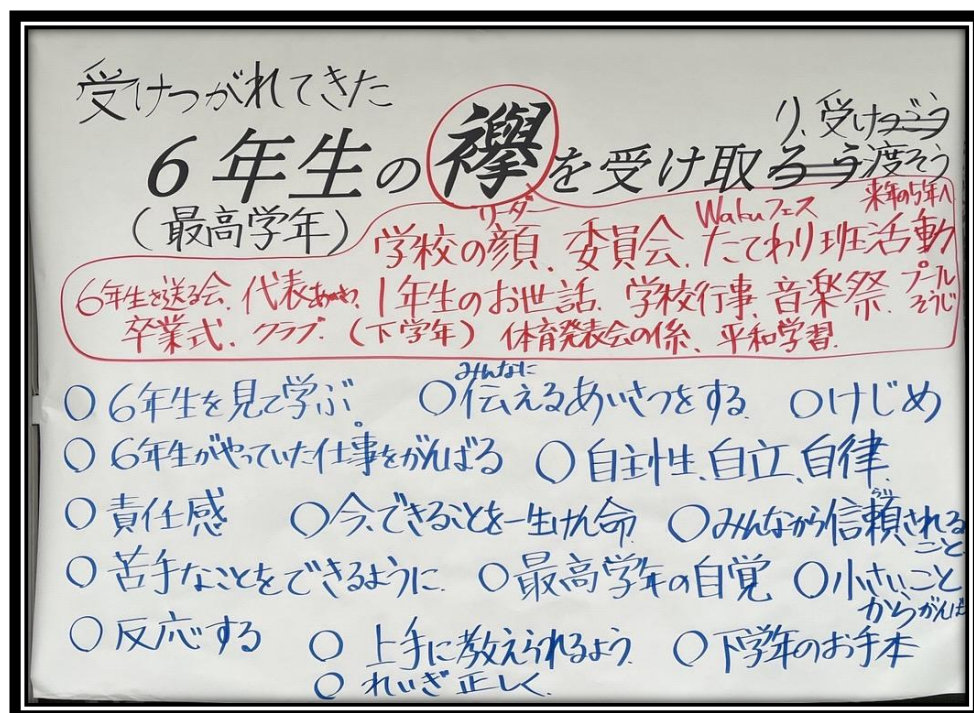 受けつがれてきた
6年生の襷を受け取ろう
り、受けつごう
渡そう
(最高学年)
リーダー
Wakuフェス
来年の5年へ
学校の顔、委員会、たてわり班活動
6年生を送る会、代表あいさつ、1年生のお世話、学校行事、音楽祭、プールそうじ
卒業式、クラブ、(下学年) 体育発表会の係、平和学習
○6年生を見て学ぶ。 ○みんなに伝えるあいさつをする ○けじめ
○6年生がやっていた仕事をがんばる ○自主性、自立、自律
○責任感 ○今、できることを一生けん命 ○みんなから信頼されること
○苦手なことをできるように ○最高学年の自覚 ○小さいことからがんば
○反応する ○上手に教えられるよう ○下学年のお手本
○れいぎ正しく